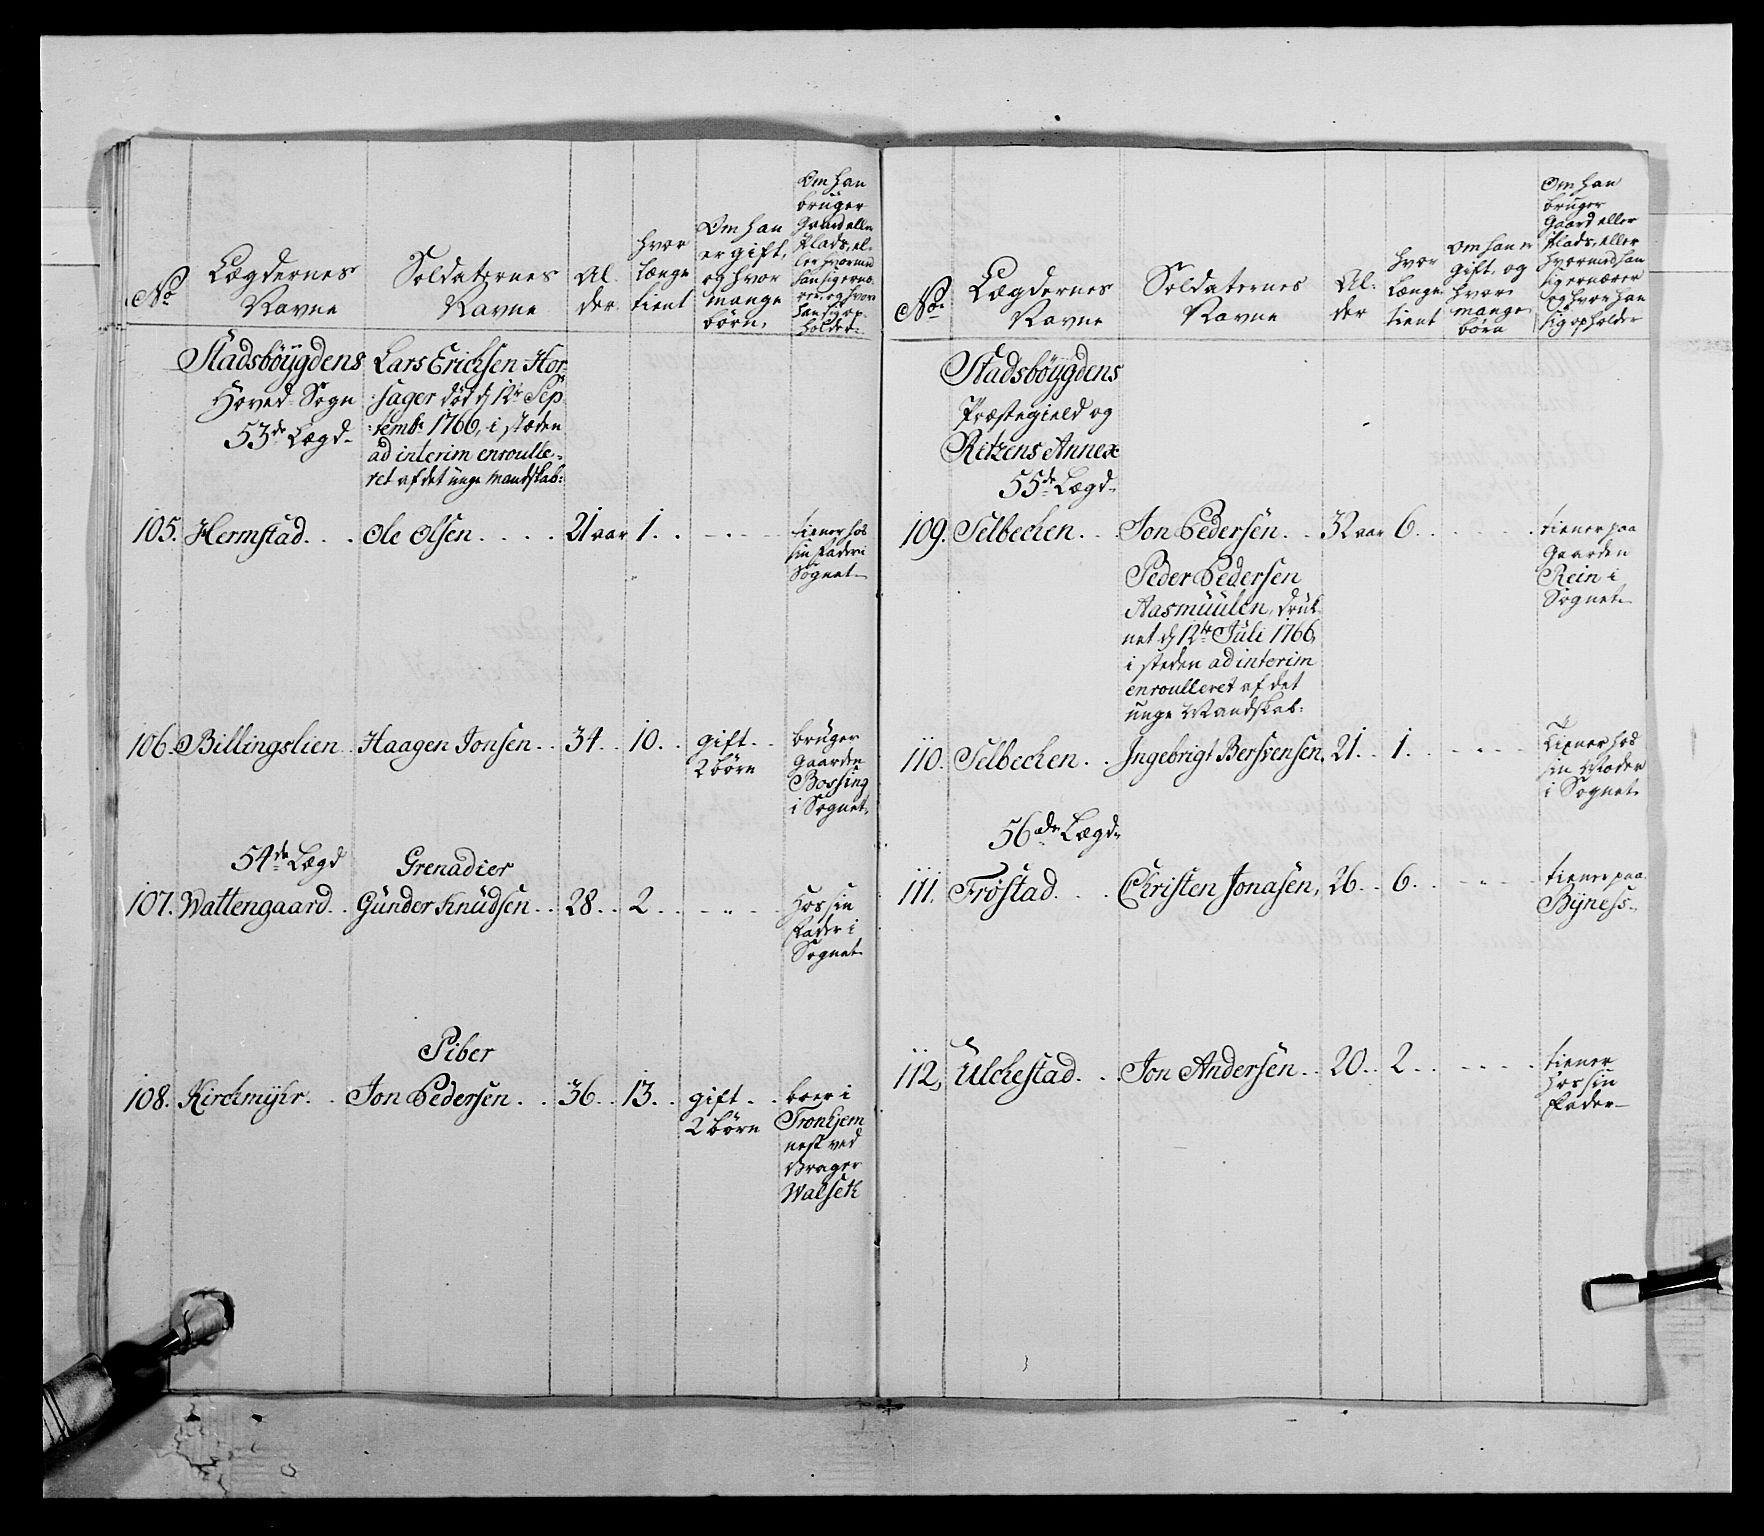 No
Lægdernes
Navne
Soldaternes
Navne
Al-
der
hvor
længe
tient
Om han
er gift,
og hvor
mange
børn.
Om han
bruger
Gaard elle
Plads, el-
ler hvormed
han sig ernæ-
rer, og hvor
han sig op-
holder.
Stadsböÿgdens
Hoved-Sogn
53de Lægd
Lars Erichsen Hor-
sager død d 12te Sep
temb: 1766, i stæden
ad interim enroulle-
ret af det unge Mandskab:
105. Hermstad... Ole Olsen.... 21 aar 1... tiener hos
sin Fader i
Sognet
106. Billingslien.. Haagen Jonsen.. 34.. 10.. gift.. bruger
2 børn Gaarden
Bossing
i Sognet.
54de Lægd Grenadier
107. Wattengaard.. Günder Knüdsen.. 28.. 2... Hos sin
Fader i
Sognet
Piber
108. Kirchmÿhr... Jon Pedersen... 36.. 13.. gift.. boer i
2 børn Tronhjem
nest ved
Brager
Walsek
No.
Lægdernes
Navne
Soldaternes
Navne
Al-
der
hvor
Længe
tient
Om han er
gift, og
hvor
mange
børn
Om han
bruger
Gaard eller
Plads, eller
hvormed han
sig ernærer
og hvor han
sig opholder
Stadsböÿgdens
Præstegield og
Ritzens Annex
55de Lægd
109. Selbechen... Jon Pedersen.. 32 aar 6... tiener paa
Gaarden
Rein i
Sognet
Peder Pedersen
Aasmüülen, druk-
net d 12te Juli 1766,
i steden ad interim
enroulleret af det
unge Mandskab:
110. Selbechen.. Ingebrigt Bersvensen, 21.. 1... Tiener hos
sin Moder
i Sognet
56de Lægd
111. Fröstad.... Christen Jonasen, 26.. 6... tiener paa
Bÿness
112, Ulchestad... Jon Andersen.. 20.. 2... tiener
Hos sin
Fader